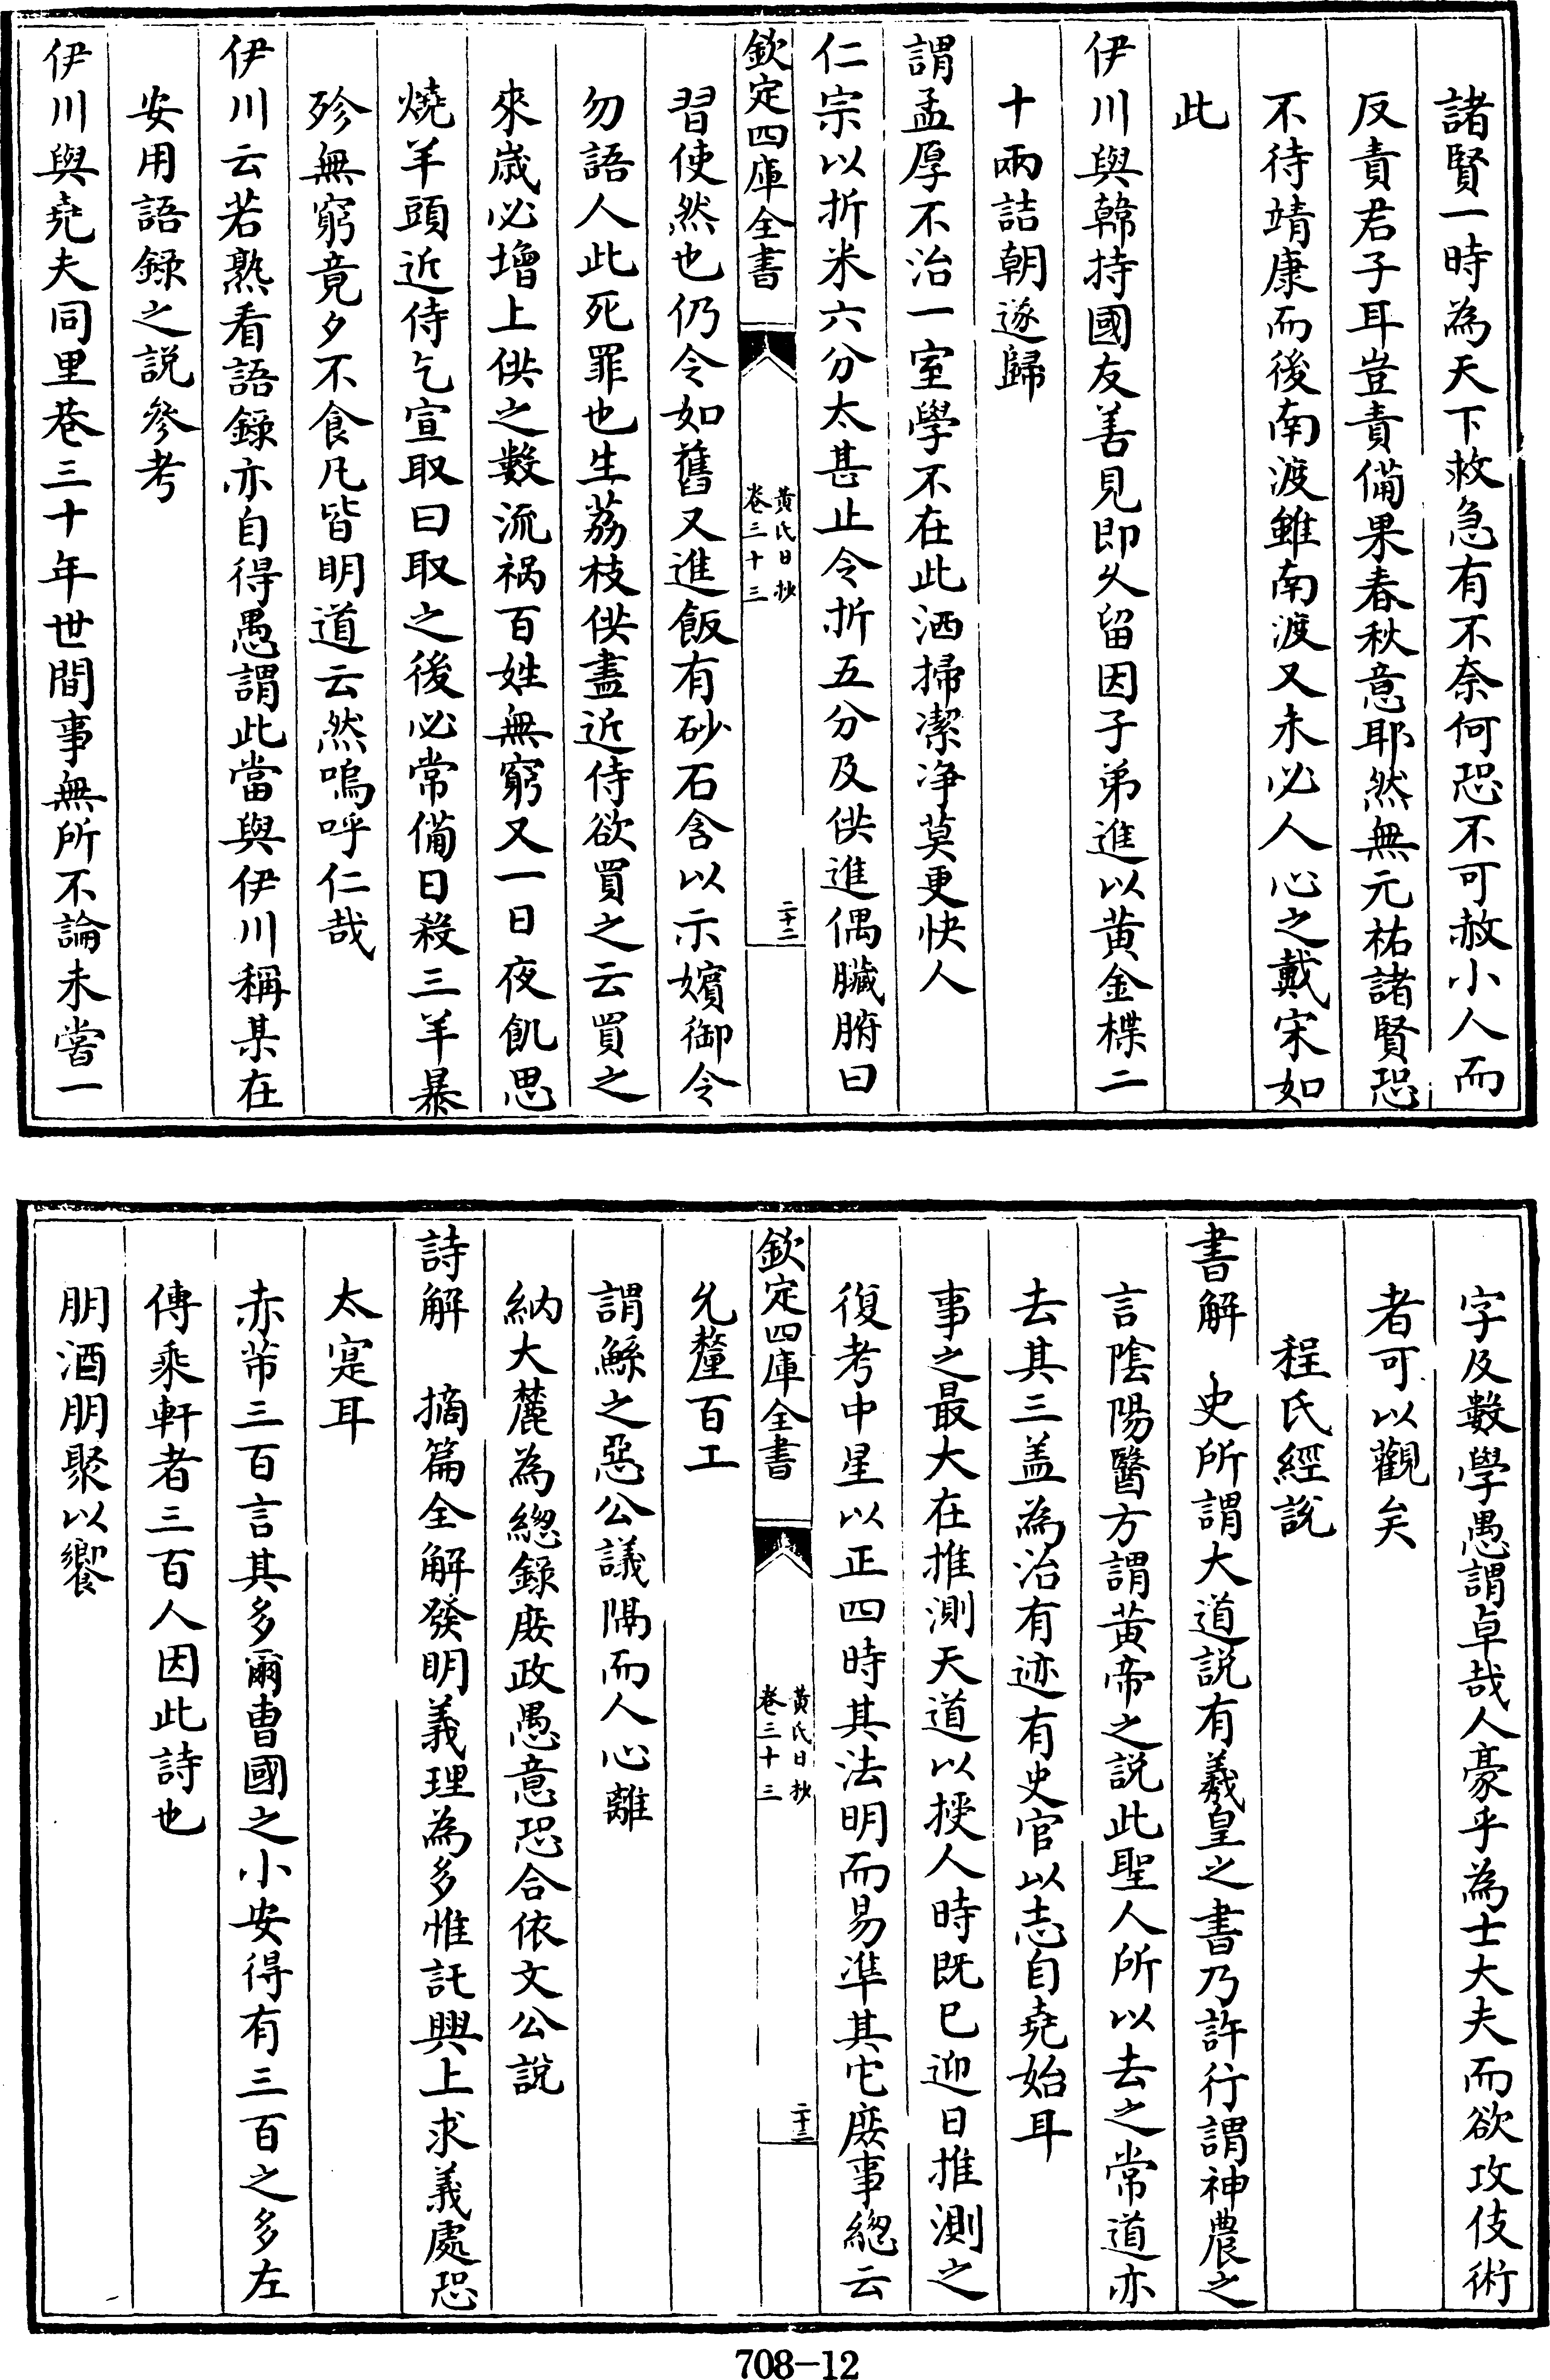 諸賢一時為天下救急有不奈何恐不可赦小人而
反責君子耳豈責備果春秋意耶然無元祐諸賢恐
不待靖康而後南渡雖南渡又未必人心之戴宋如
此
伊川與韓持國友善見即乆留因子弟進以黄金楪二
十兩詰朝遂歸
謂孟厚不治一室學不在此洒掃潔净莫更快人
仁宗以折米六分太甚止令折五分及供進偶臟腑曰
欽定四庫全書
黄氏日抄
卷三十三
二十二
習使然也仍令如舊又進飯有砂石含以示嬪御令
勿語人此死罪也生荔枝供盡近侍欲買之云買之
來歲必增上供之數流禍百姓無窮又一日夜飢思
燒羊頭近侍乞宣取曰取之後必常備日殺三羊暴
殄無窮竟夕不食凡皆明道云然嗚呼仁哉
伊川云若熟看語錄亦自得愚謂此當與伊川稱某在
安用語録之説參考
伊川與堯夫同里巷三十年世間事無所不論未嘗一
字及數學愚謂卓哉人豪乎為士大夫而欲攻伎術
者可以觀矣
程氏經説
書解　史所謂大道説有羲皇之書乃許行謂神農之
言陰陽醫方謂黄帝之説此聖人所以去之常道亦
去其三盖為治有迹有史官以志自堯始耳
事之最大在推測天道以授人時既已迎日推測之
復考中星以正四時其法明而易凖其它庶事總云
欽定四庫全書
黄氏日抄
卷三十三
二十三
允釐百工
謂鯀之惡公議隔而人心離
納大麓為總錄庶政愚意恐合依文公説
詩解　摘篇全解發明義理為多惟託興上求義處恐
太寔耳
赤芾三百言其多爾曹國之小安得有三百之多左
傳乘軒者三百人因此詩也
朋酒朋聚以饗
708-12